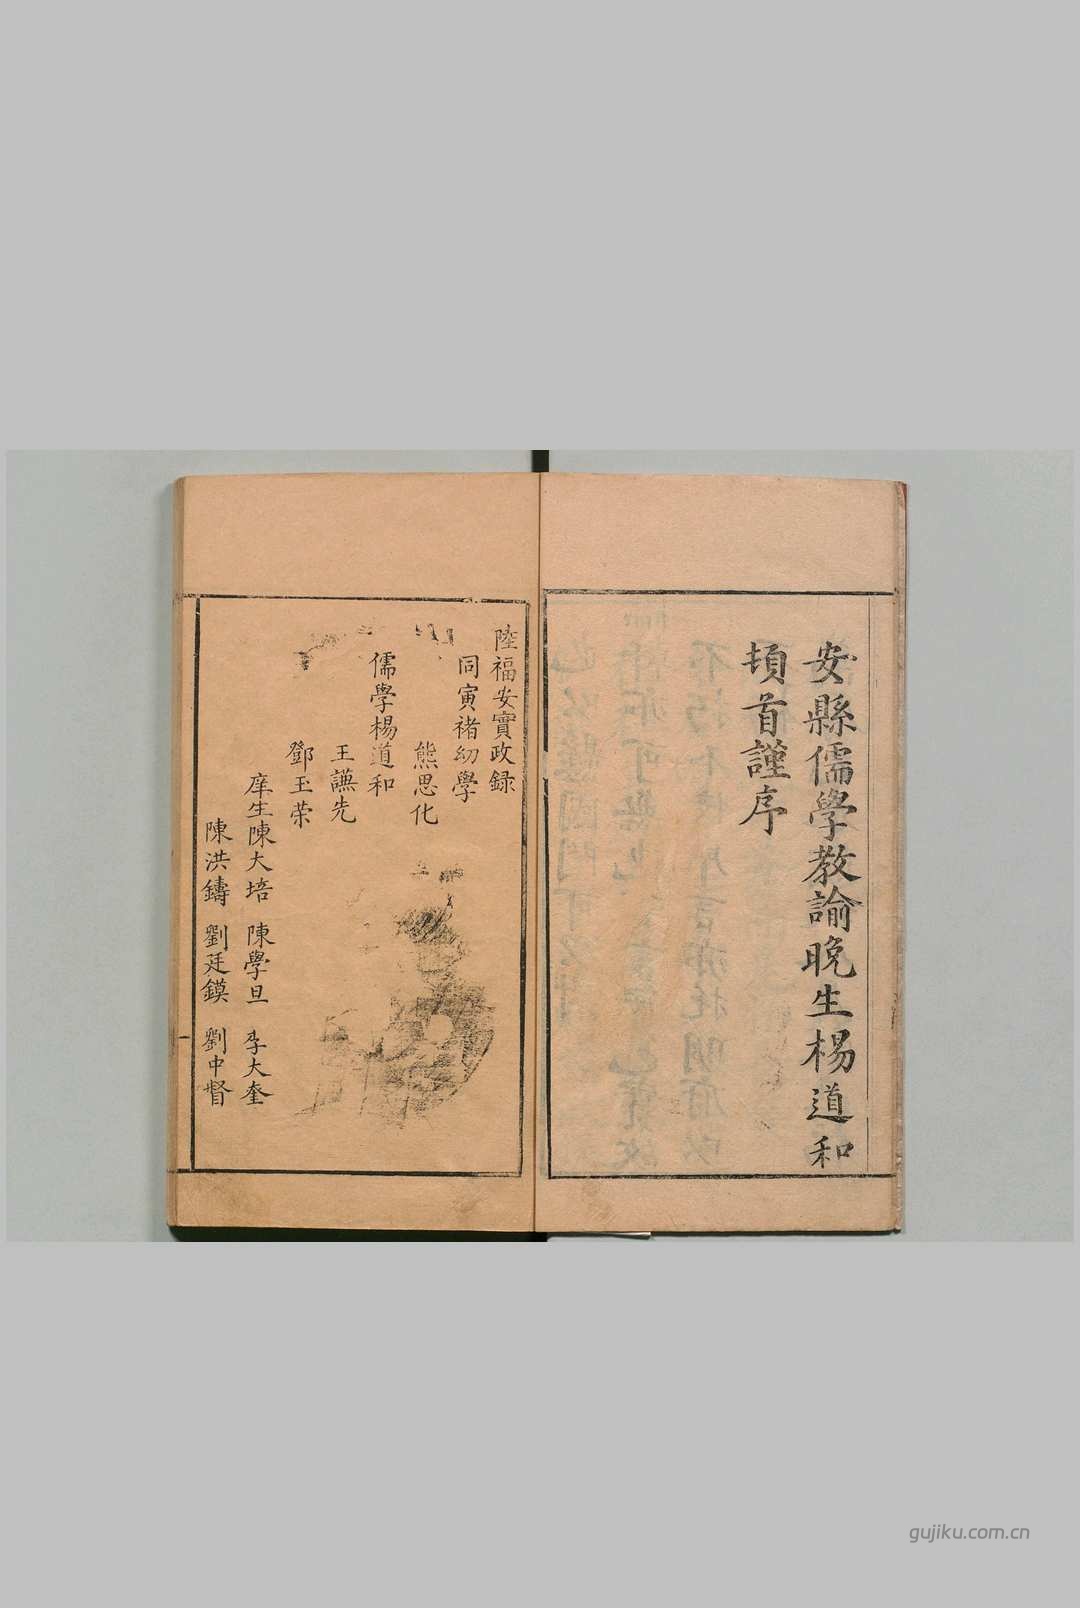 安縣儒學教諭晚生楊道和
頓首謹序
陸福安實政録
同寅褚幼學
熊思化
儒學楊道和
王謙先
鄧玉荣
庠生陳大培 陳學旦 李大奎
陳洪鑄 劉廷鏌 劉中督
gujiku.com.cn